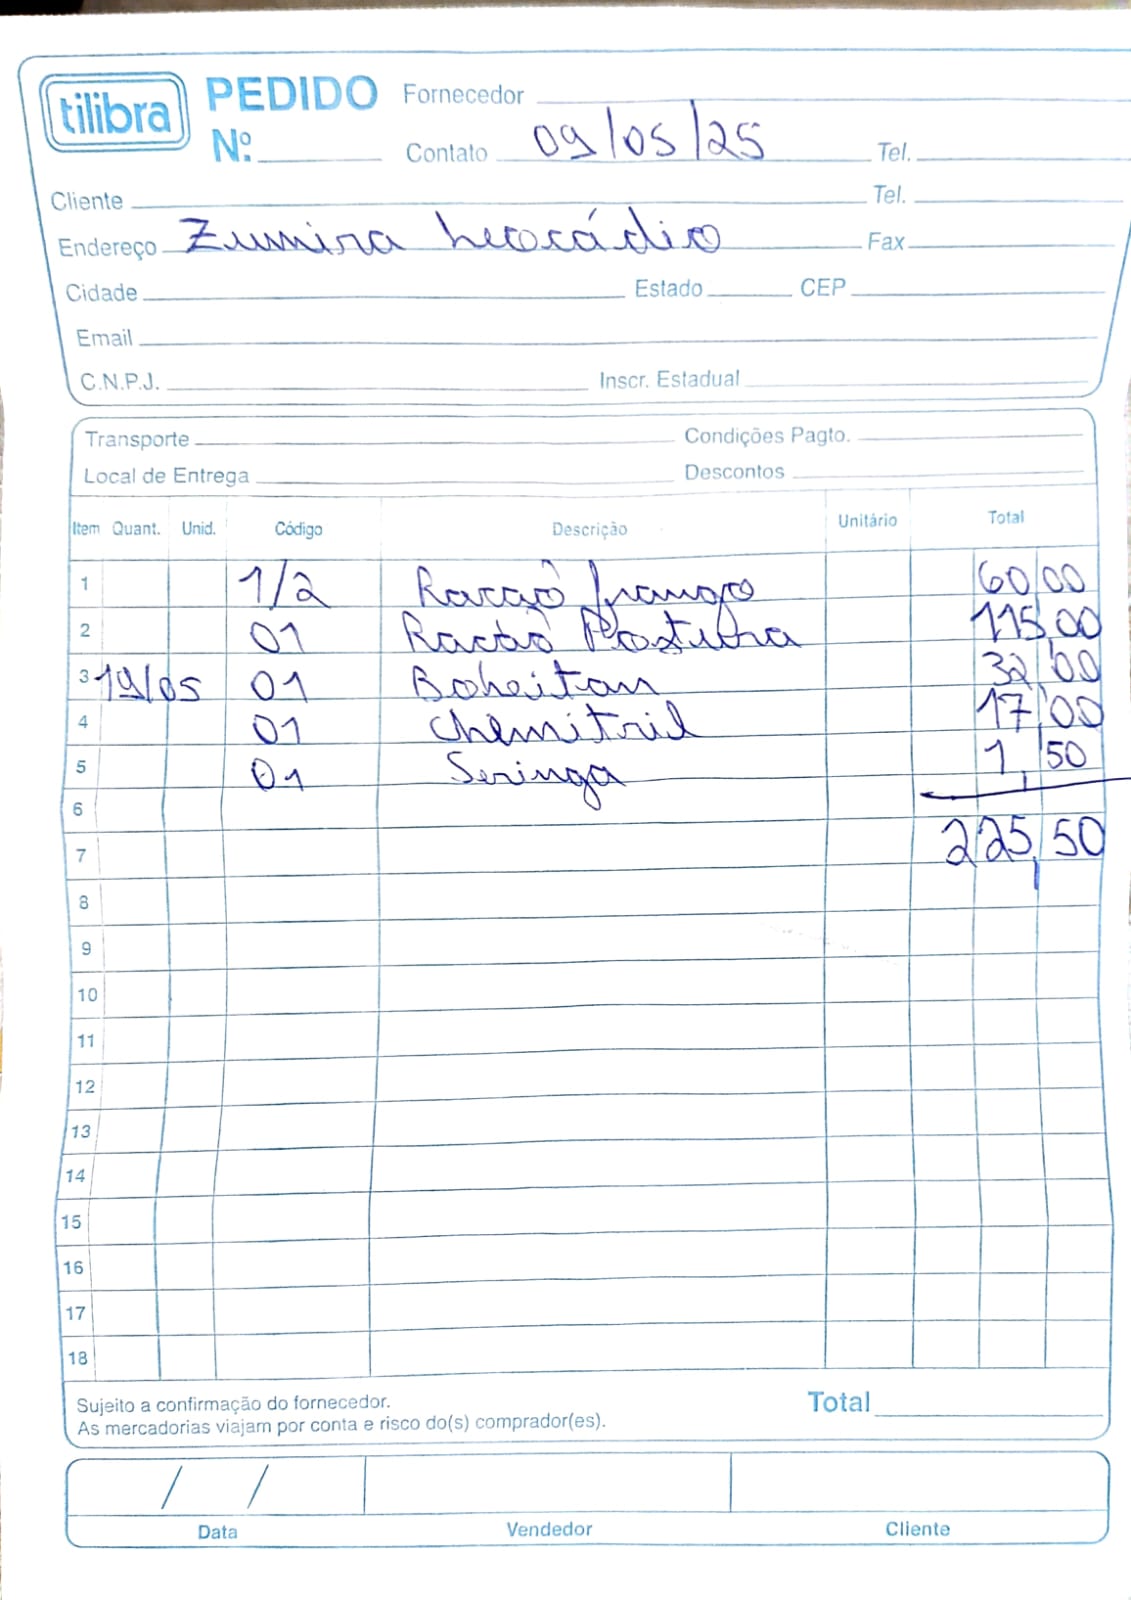 tilibra PEDIDO Fornecedor
Nº. Contato 09/05/25 Tel.
Cliente Tel.
Endereço Zumira Leocádio Fax
Cidade Estado CEP
Email
C.N.P.J. Inscr. Estadual
Transporte Condições Pagto.
Local de Entrega Descontos
Item Quant. Unid. Código Descrição Unitário Total
1 1/2 Ração frango 60,00
2 01 Ração Postura 115,00
3 19/05 01 Boheitan 32,00
4 01 Chemitril 17,00
5 01 Seringa 1,50
6
7 225,50
8
9
10
11
12
13
14
15
16
17
18
Sujeito a confirmação do fornecedor.
As mercadorias viajam por conta e risco do(s) comprador(es). Total
/ /
Data Vendedor Cliente